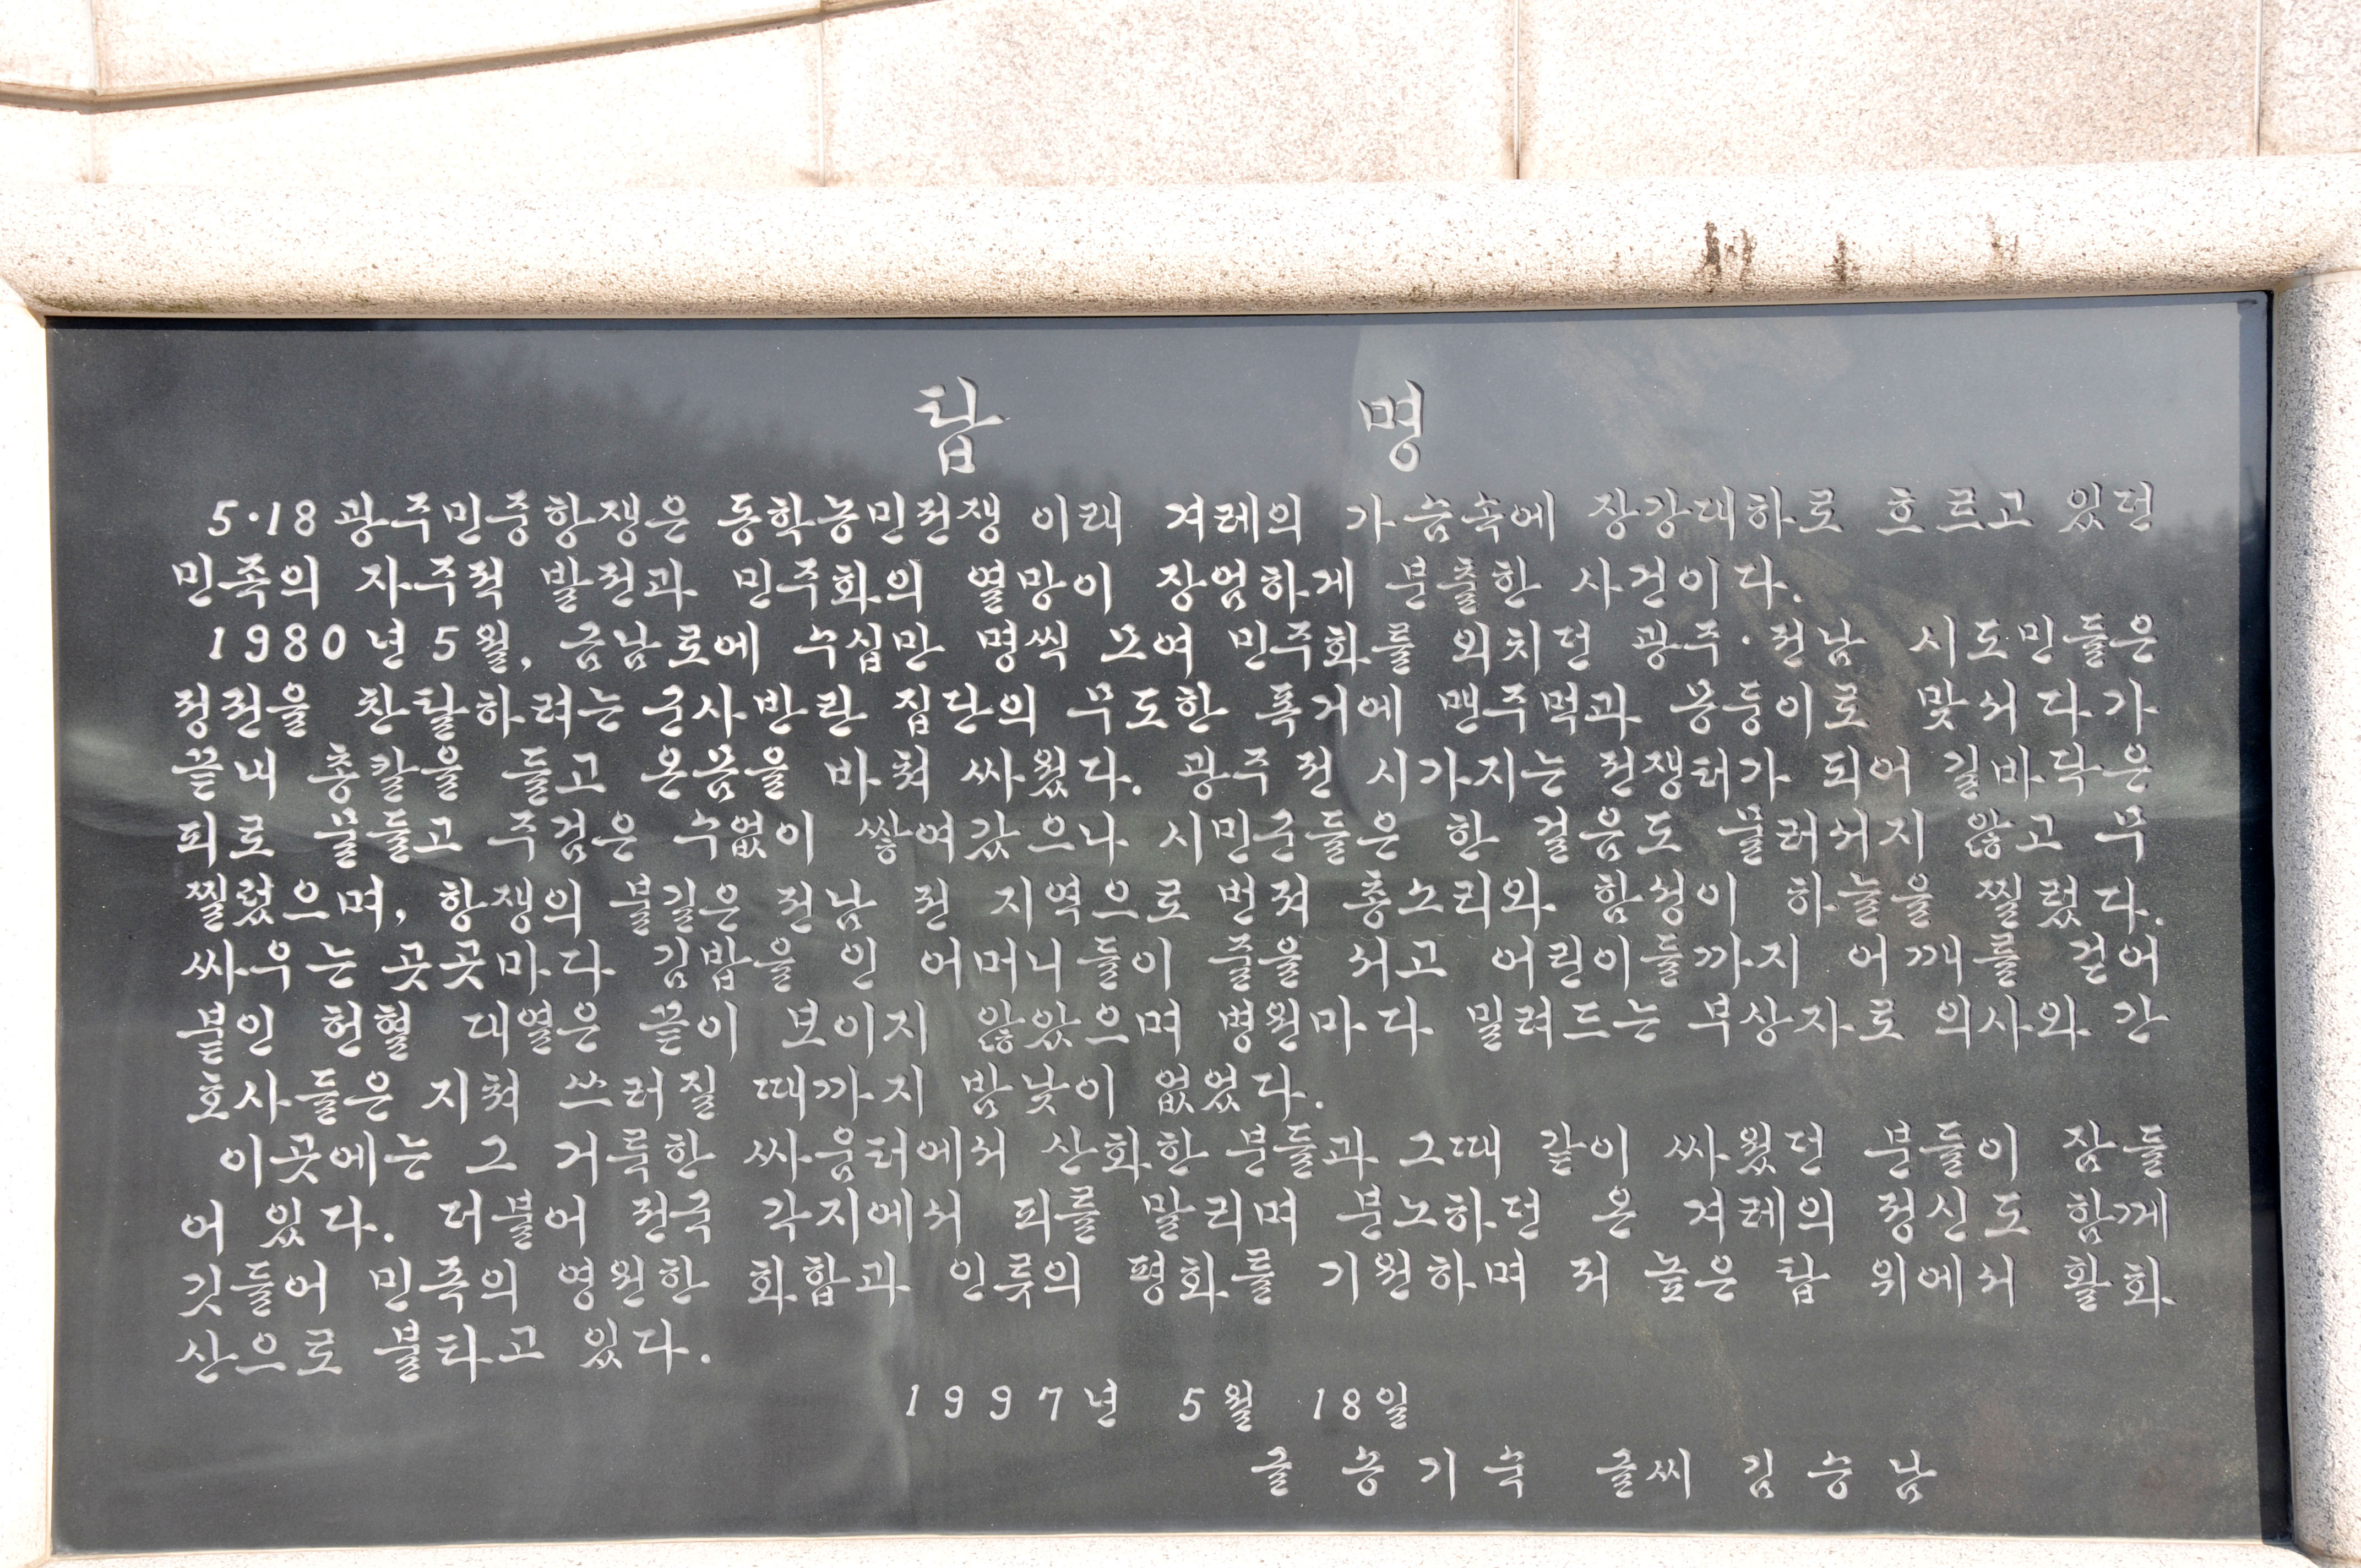 탑 명
5·18 광주민중항쟁은 동학농민전쟁 이래 겨레의 가슴속에 장강대하로 흐르고 있던
민족의 자주적 발전과 민주화의 열망이 장엄하게 분출한 사건이다.
1980년 5월, 금남로에 수십만 명씩 모여 민주화를 외치던 광주·전남 시도민들은
정권을 찬탈하려는 군사반란 집단의 무도한 폭거에 맨주먹과 몽둥이로 맞서다가
끝내 총칼을 들고 온몸을 바쳐 싸웠다. 광주 전 시가지는 전쟁터가 되어 길바닥은
피로 물들고 주검은 수없이 쌓여갔으나 시민군들은 한 걸음도 물러서지 않고 무
찔렀으며, 항쟁의 불길은 전남 전 지역으로 번져 총소리와 함성이 하늘을 찔렀다.
싸우는 곳곳마다 김밥을 인 어머니들이 줄을 서고 어린이들까지 어깨를 겯어
붙인 헌혈 대열은 끝이 보이지 않았으며 병원마다 밀려드는 부상자로 의사와 간
호사들은 지쳐 쓰러질 때까지 밤낮이 없었다.
이곳에는 그 거룩한 싸움터에서 산화한 분들과 그때 같이 싸웠던 분들이 잠들
어 있다. 더불어 전국 각지에서 피를 말리며 분노하던 온 겨레의 정신도 함께
깃들어 민족의 영원한 화합과 인류의 평화를 기원하며 저 높은 탑 위에서 활화
산으로 불타고 있다.
1997년 5월 18일
글 송기숙 글씨 김승남